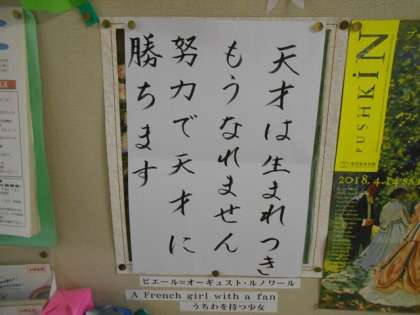 天才は生まれつき
もうなれません
努力で天才に
勝ちます
ピエール=オーギュスト・ルノワール
A French girl with a fan
うちわを持つ少女
PUSHKIN
2018.4.14 SAT